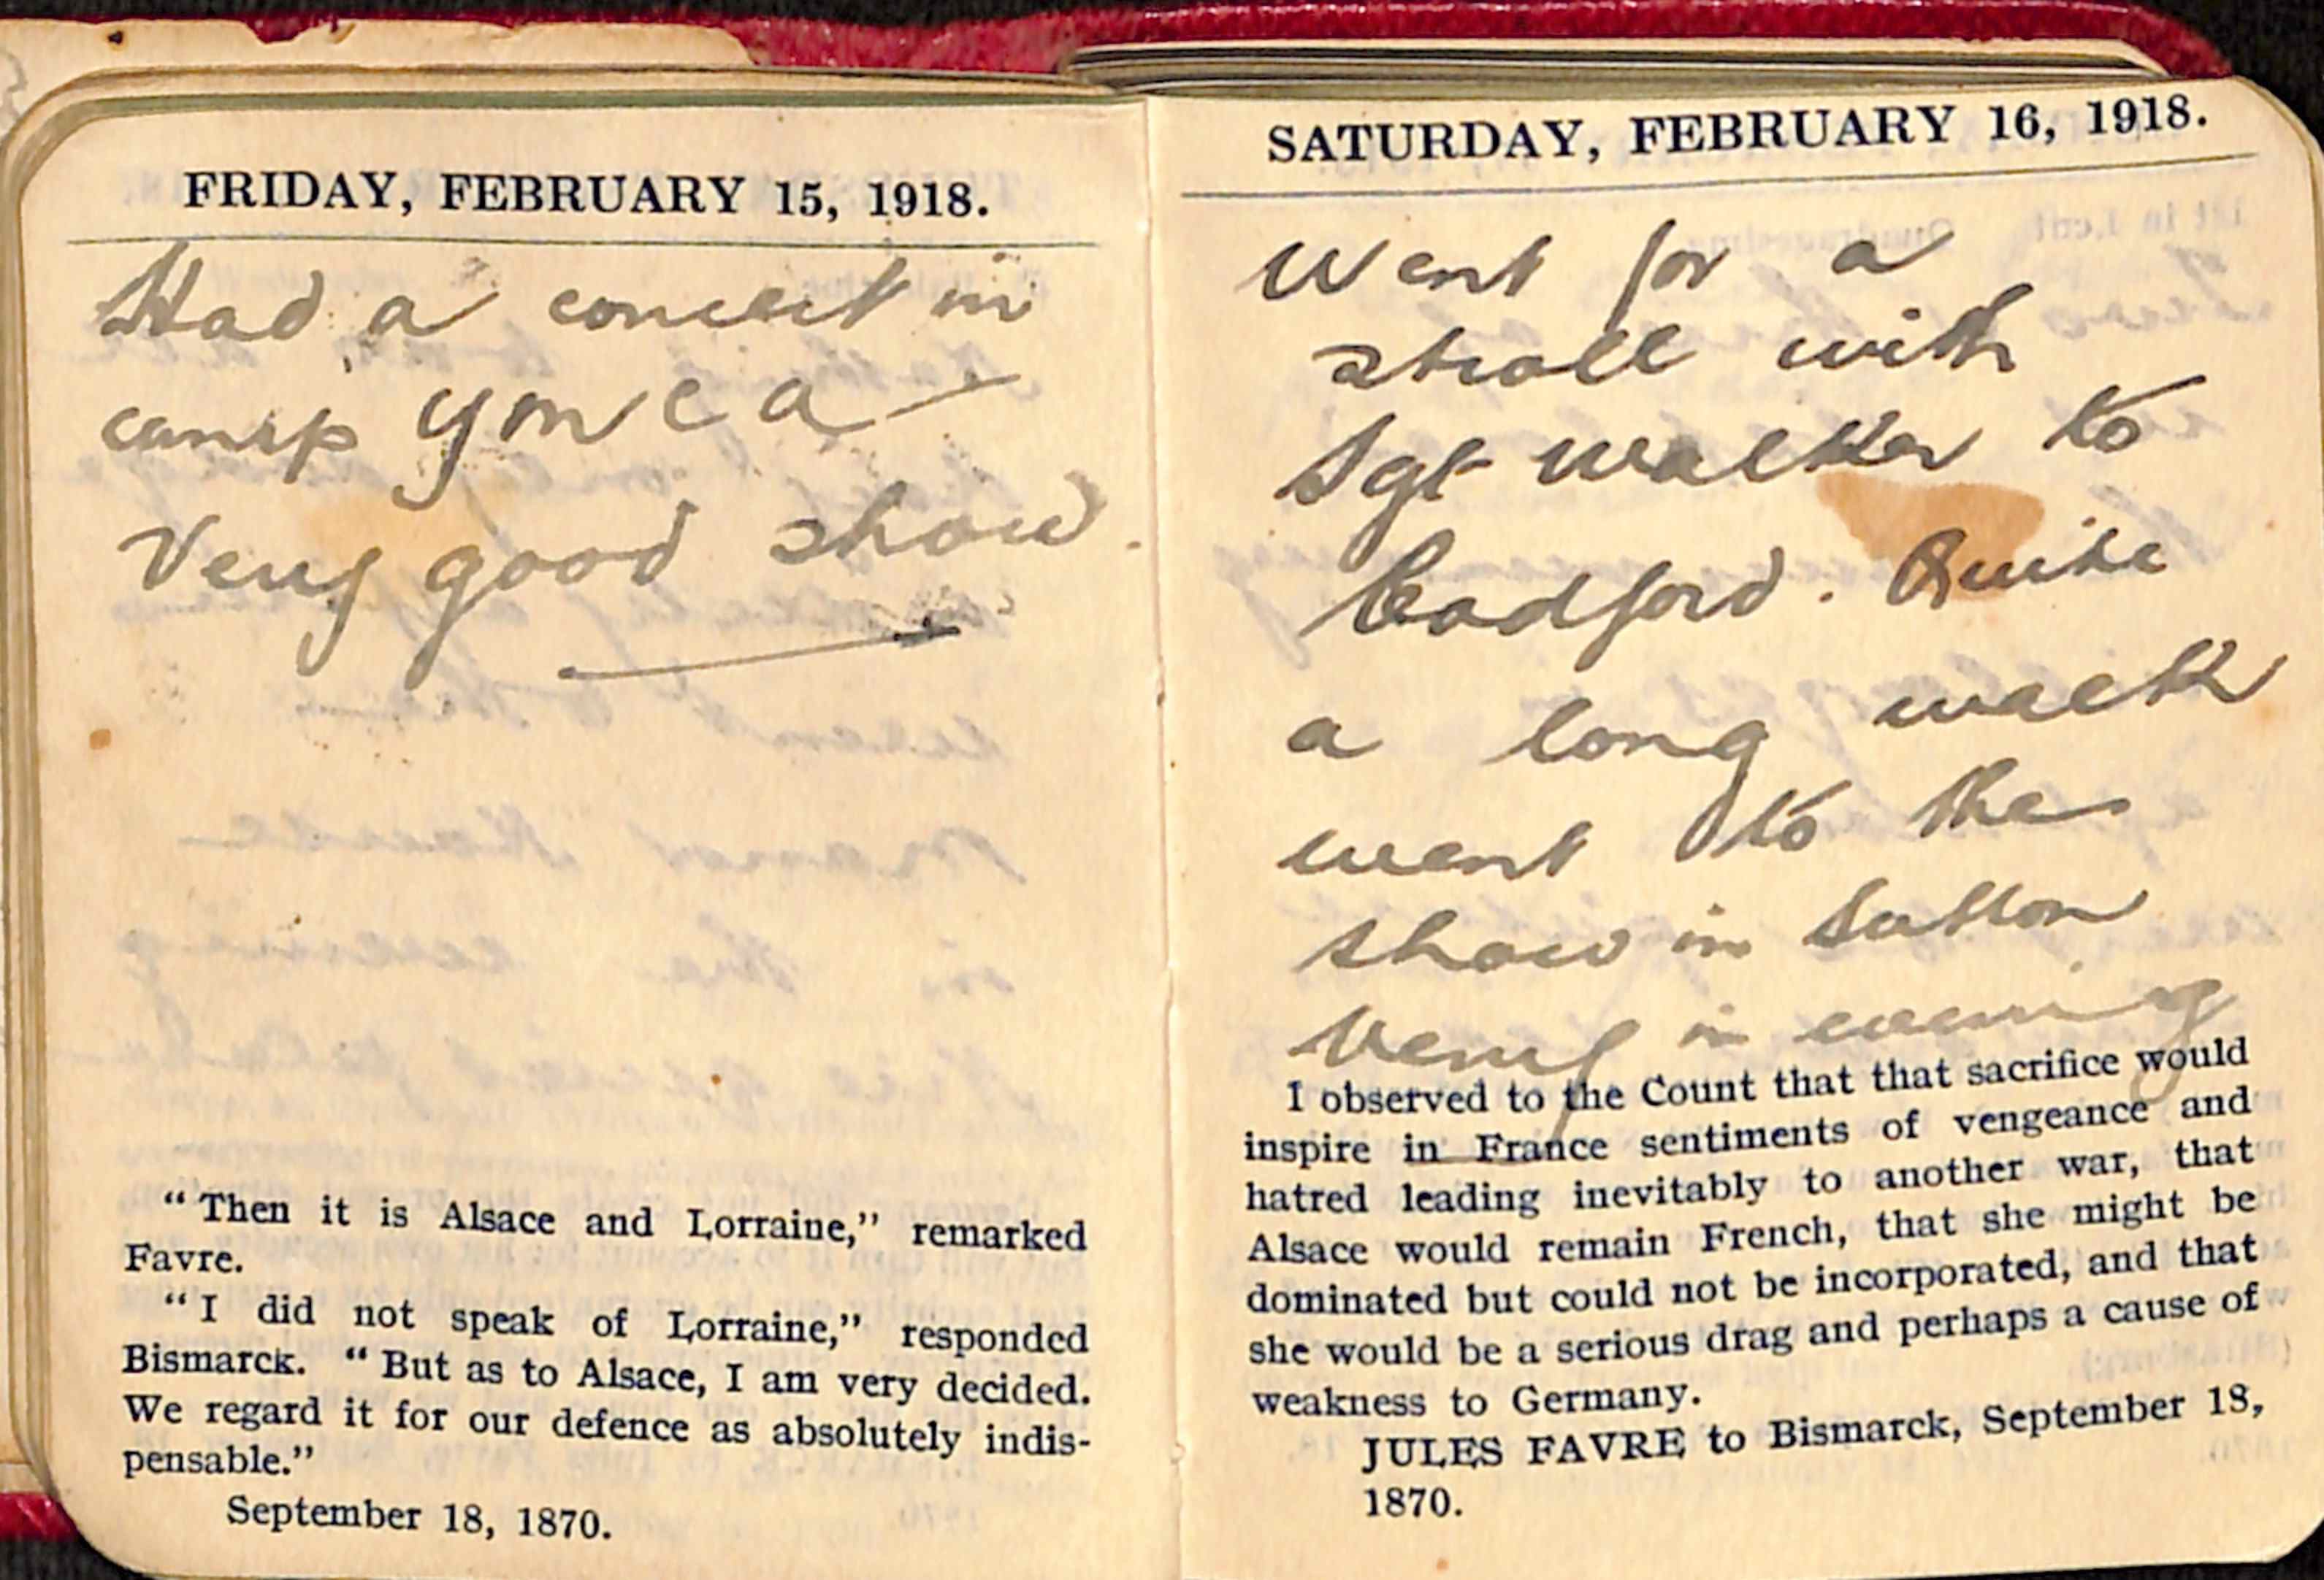 FRIDAY, FEBRUARY 15, 1918.
Had a concert in
camp YMCA —
Very good show.
"Then it is Alsace and Lorraine," remarked
Favre.
"I did not speak of Lorraine," responded
Bismarck. "But as to Alsace, I am very decided.
We regard it for our defence as absolutely indis-
pensable."
September 18, 1870.
SATURDAY, FEBRUARY 16, 1918.
Went for a
stroll with
Sgt Walker to
Codford. Quite
a long walk
went to the
show in Sutton
Veny in evening
I observed to the Count that that sacrifice would
inspire in France sentiments of vengeance and
hatred leading inevitably to another war, that
Alsace would remain French, that she might be
dominated but could not be incorporated, and that
she would be a serious drag and perhaps a cause of
weakness to Germany.
JULES FAVRE to Bismarck, September 18,
1870.